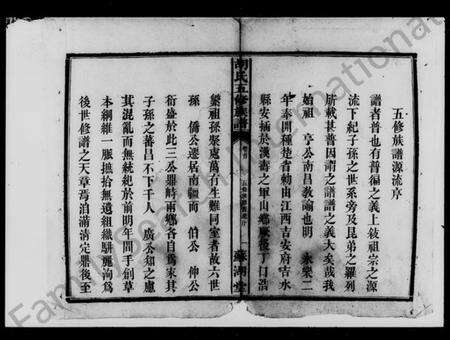 五修族譜源流序
譜者普也有普徧之義上敍祖宗之源
流下紀子孫之世系旁及昆弟之羅列
所載甚普因謂之譜譜之義大矣哉我
始祖 亨公南昌教諭也明 永樂二
年奉開種楚省勅由江西吉安府吉水
縣安插於漢壽之軍山鄉厥後丁口浩
胡氏五修族譜
蘇湖堂
繁祖孫聚處萬有生難同室者故六世
孫 僑公遷居南疆而 伯公 仲公
衍盛於此三公嗣時兩鄉各自為家其
子孫之蕃昌不下千人 廣公知之慮
其混亂而無統紀於前明年間手創草
本綱維一脈摭拾無遺組織駢麗洵為
後世修譜之天章焉洎滿清定鼎後至